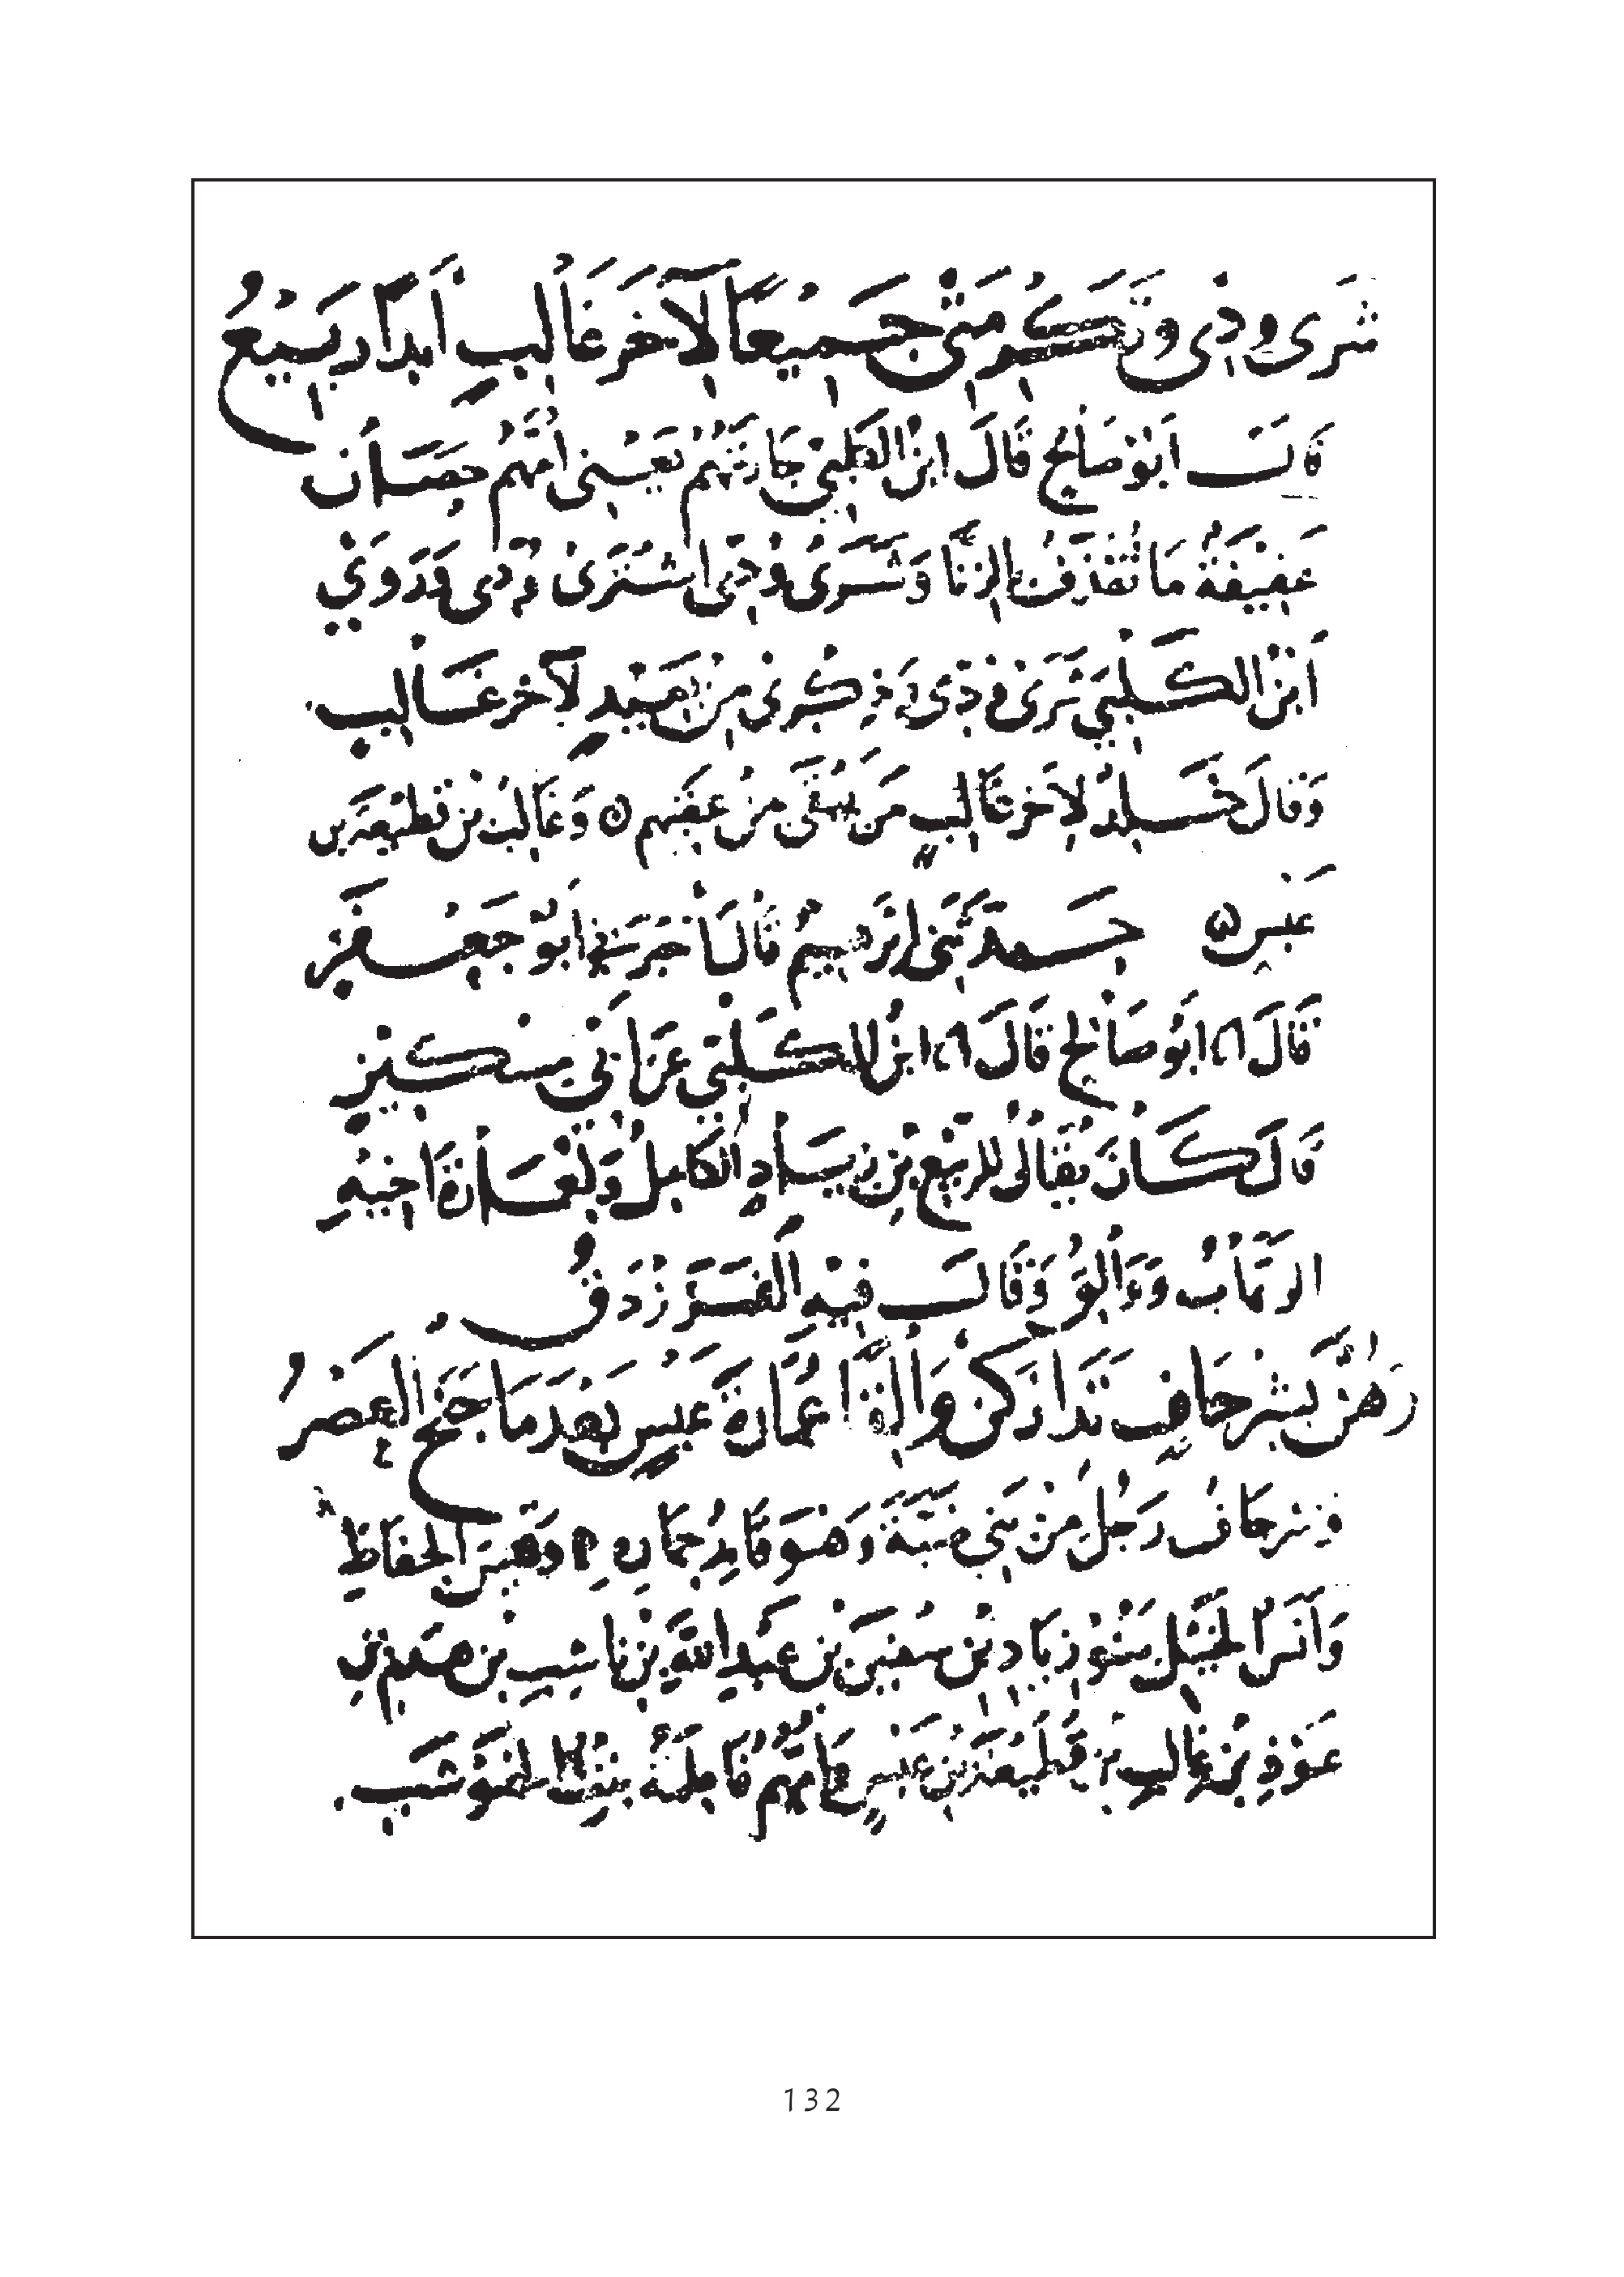 شَرَى وُدِّي وَشُكْرِي مِنْ جَمِيْعًا لِآخَرَ غَالِبٍ أَبَدًا رَبِيْعُ
قَالَ أَبُوْ صَالِحٍ قَالَ ابْنُ الْكَلْبِيِّ جَارَتُهُمْ يَعْنِي أُمَّهُمْ حَصَان
عَفِيْفَةٌ مَا تُقْذَفُ بِالزِّنَا وَشَرَى وُدِّي اشْتَرَى وُدِّي وَرَوَى
ابْنُ الْكَلْبِيِّ شَرَى وُدِّي وَذِكْرِي مِنْ بَعِيْدٍ لِآخَرَ غَالِبٍ
وَقَالَ خَالِدٌ لِآخَرَ غَالِبٍ مَنْ يَبْقَى مِنْ عَقِبِهِمْ ۞ وَغَالِبُ بْنُ قُطَيْعَةَ بن
عَبْسٍ ۞ حَدَّثَنِي إِبْرَاهِيْمُ قَالَ أَخْبَرَنِي أَبُوْ جَعْفَرٍ
قَالَ أَبُوْ صَالِحٍ قَالَ ابْنُ الْكَلْبِيِّ عَنْ أَبِي مِسْكِيْنٍ
قَالَ كَانَ يُقَالُ لِلرَّبِيْعِ بْنِ زِيَادٍ الْكَامِلُ وَلِعُمَارَةَ أَخِيْهِ
الْوَهَّابُ وَدَالِقُ وَقَالَ فِيْهِ الْفَرَزْدَقُ
وَهُنَّ بِشِرْحَافٍ تَدَارَكْنَ دَالِقًا عُمَارَةَ عَبْسٍ بَعْدَ مَا جَنَحَ الْعَصْرُ
وشِرْحَافُ رَجُلٌ مِنْ بَنِي ضَبَّةَ وَهُوَ قَاتِلُ عُمَارَةَ وَقَيْسَ الْحِفَاظِ
وَأَنَسُ الْخَيْلِ بَنُوْ زِيَادِ بْنِ سُفْيَنَ بْنِ عَبْدِ اللهِ بْنِ نَاشِبِ بْنِ هِدْمِ بْنِ
عَوْذِ بْنِ غَالِبِ بْنِ قُطَيْعَةَ بْنِ عَبْسٍ وَأُمُّهُمْ فَاطِمَةُ بِنْتُ الْخُرْشُبِ.
132